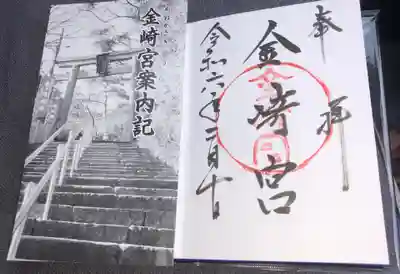 金崎宮案内記
奉拝
金崎宮
令和六年二月十日